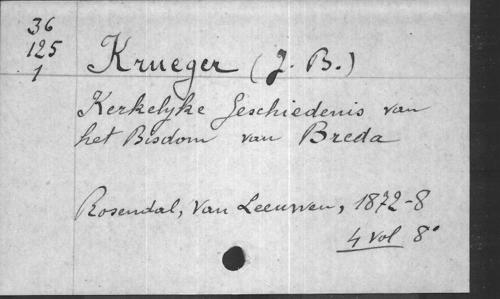 36
125
1
Krueger (J. B.)
Kerkelyke Geschiedenis van
het Bisdom van Breda
Rosendal, Van Leeuwen, 1872-8
4 vol 8°